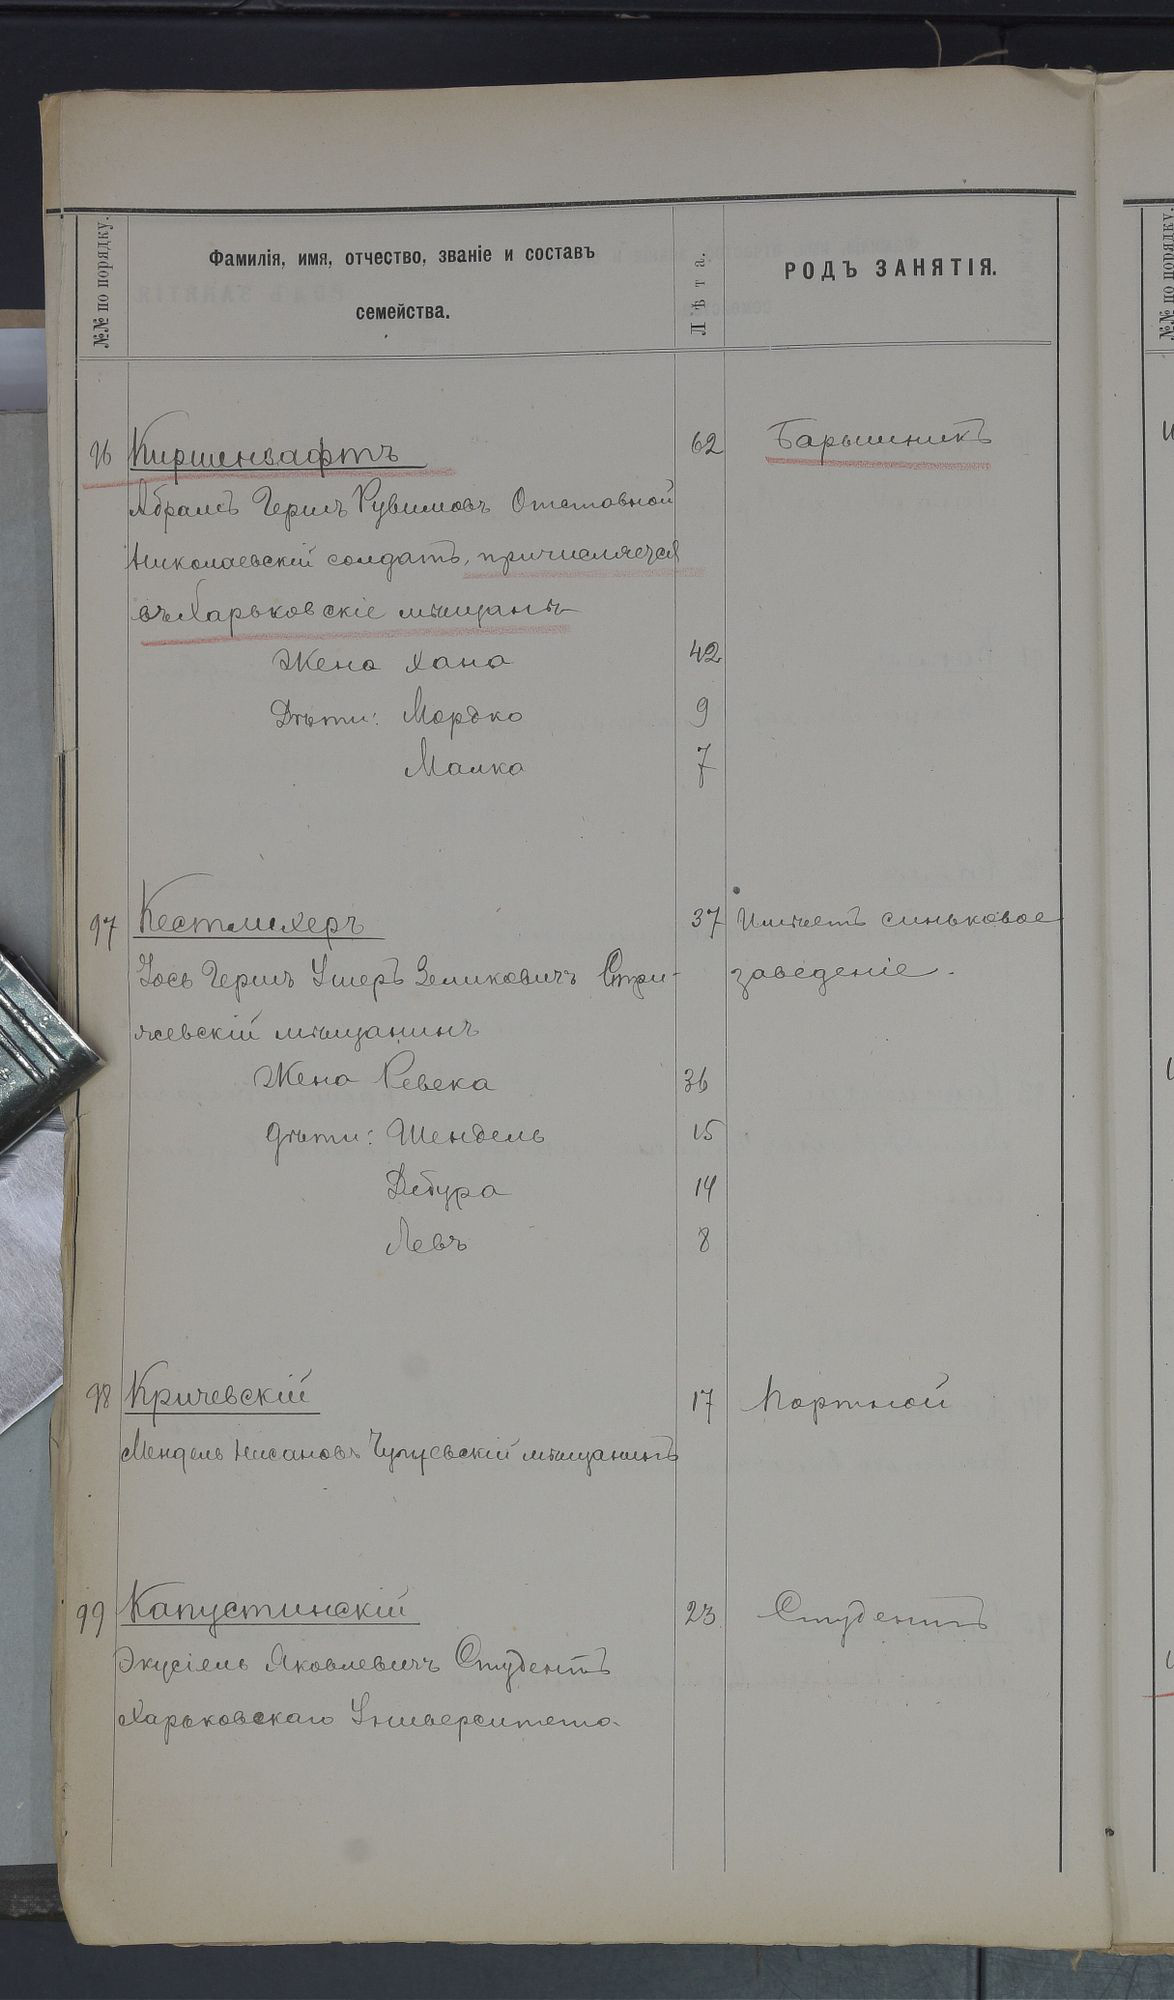 №№ по порядку.
Фамилія, имя, отчество, званіе и составъ
семейства.
Лѣта.
РОДЪ ЗАНЯТІЯ.
№№ по порядку.
96 Киршенвафтъ 62 Барышникъ
Абрамъ Гершъ Рувимовъ Отставной
Николаевскій солдатъ, причисляется
въ Харьковскіе мѣщане
Жена Хана 42
Дѣти: Мордко 9
Малка 7
97 Кестлихеръ 37 Имѣетъ синьковое
Іось Гершъ Ушеръ Зеликовичъ Стри-
заведеніе.
жевскій мѣщанинъ
Жена Ревека 36
Дѣти: Шендель 15
14
Левъ 8
98 Кричевскій 17 Портной
Мендель Нисановъ Чугуевскій мѣщанинъ
99 Капустинскій 23 Студентъ
Экусіель Яковлевичъ Студентъ
Харьковскаго Университета.